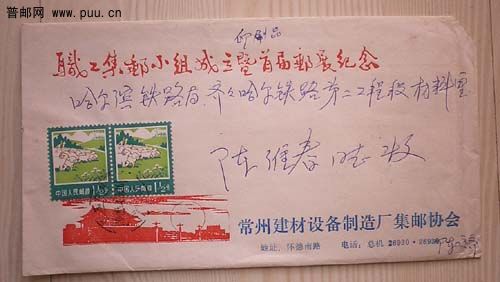 普邮网
www.puu.cn
印刷品
职工集邮小组成立暨首届邮展纪念
哈尔滨铁路局齐齐哈尔铁路第二工程段材料室
陈维春 同志 收
中国人民邮政 1½分
中国人民邮政 1½分
常州建材设备制造厂集邮协会
地址：怀德南路 电话：总机 26930·26939